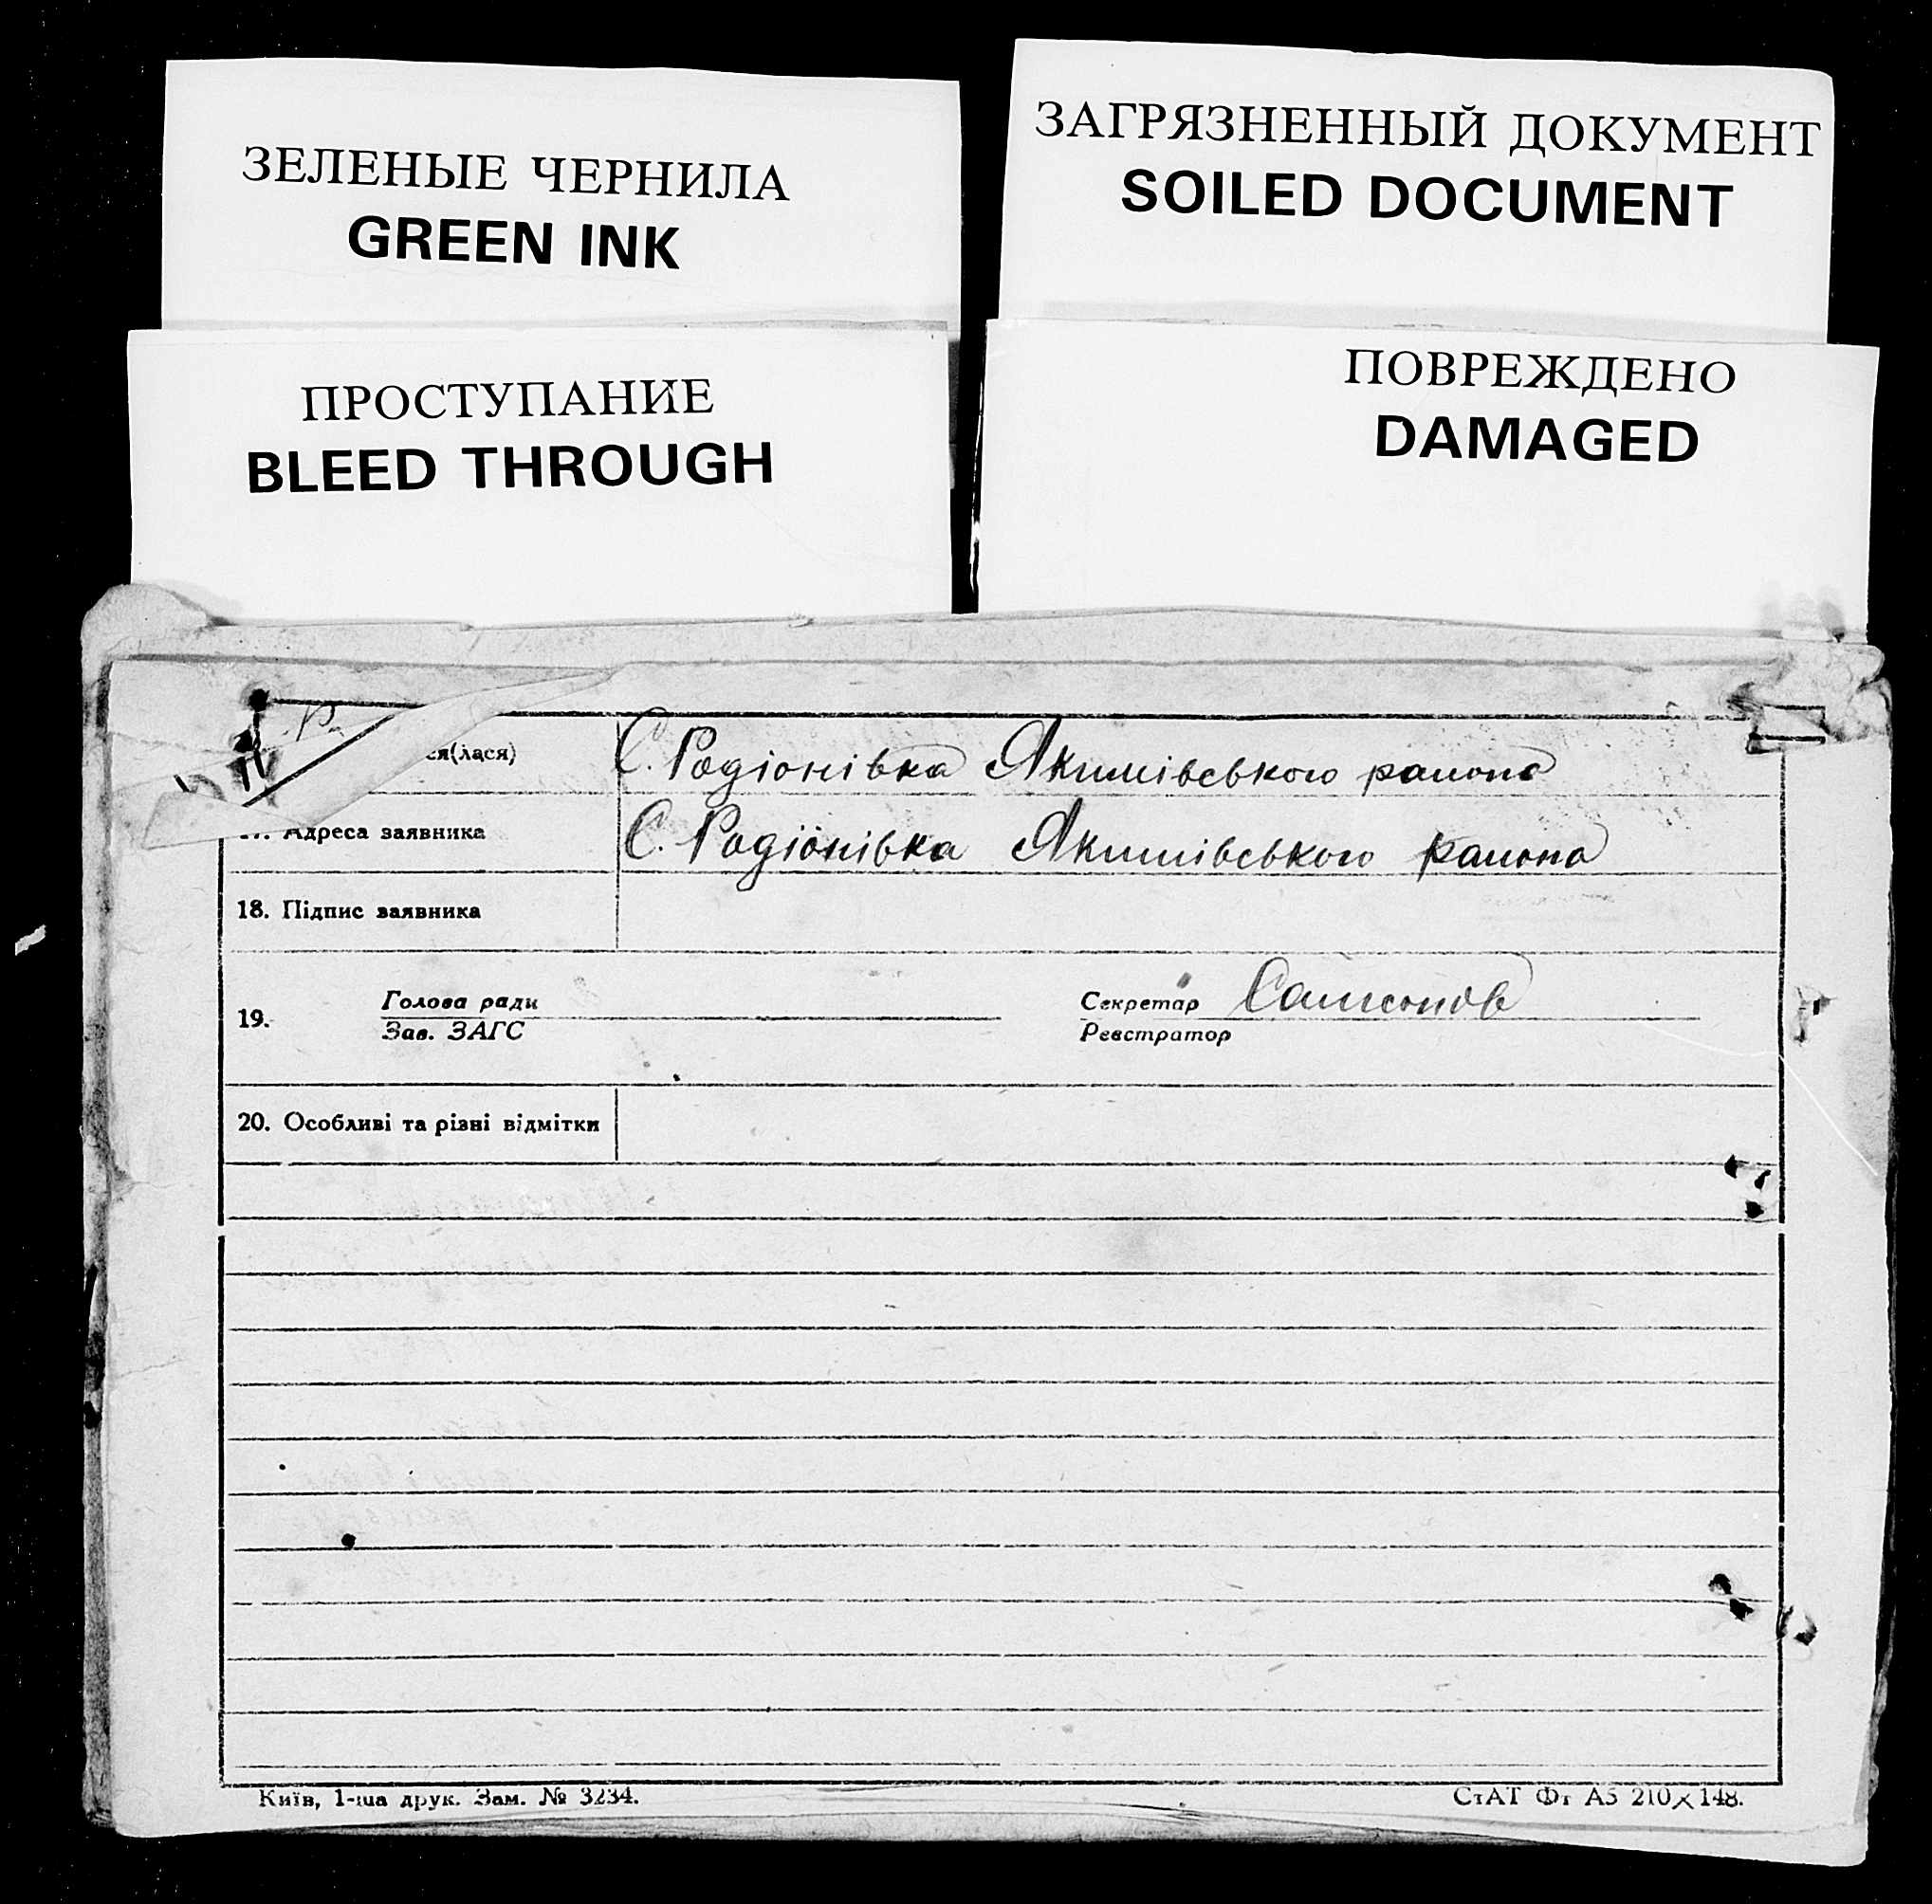 ЗЕЛЕНЫЕ ЧЕРНИЛА
GREEN INK
ЗАГРЯЗНЕННЫЙ ДОКУМЕНТ
SOILED DOCUMENT
ПРОСТУПАНИЕ
BLEED THROUGH
ПОВРЕЖДЕНО
DAMAGED
ся(лася) С. Радіонівка Якимівського района
Адреса заявника С. Радіонівка Якимівського района
18. Підпис заявника
19. Голова ради Секретар Самсонов
Зав. ЗАГС Реєстратор
20. Особливі та різні відмітки
Київ, 1-ша друк. Зам. № 3234. СтАТ Фт А5 210×148.